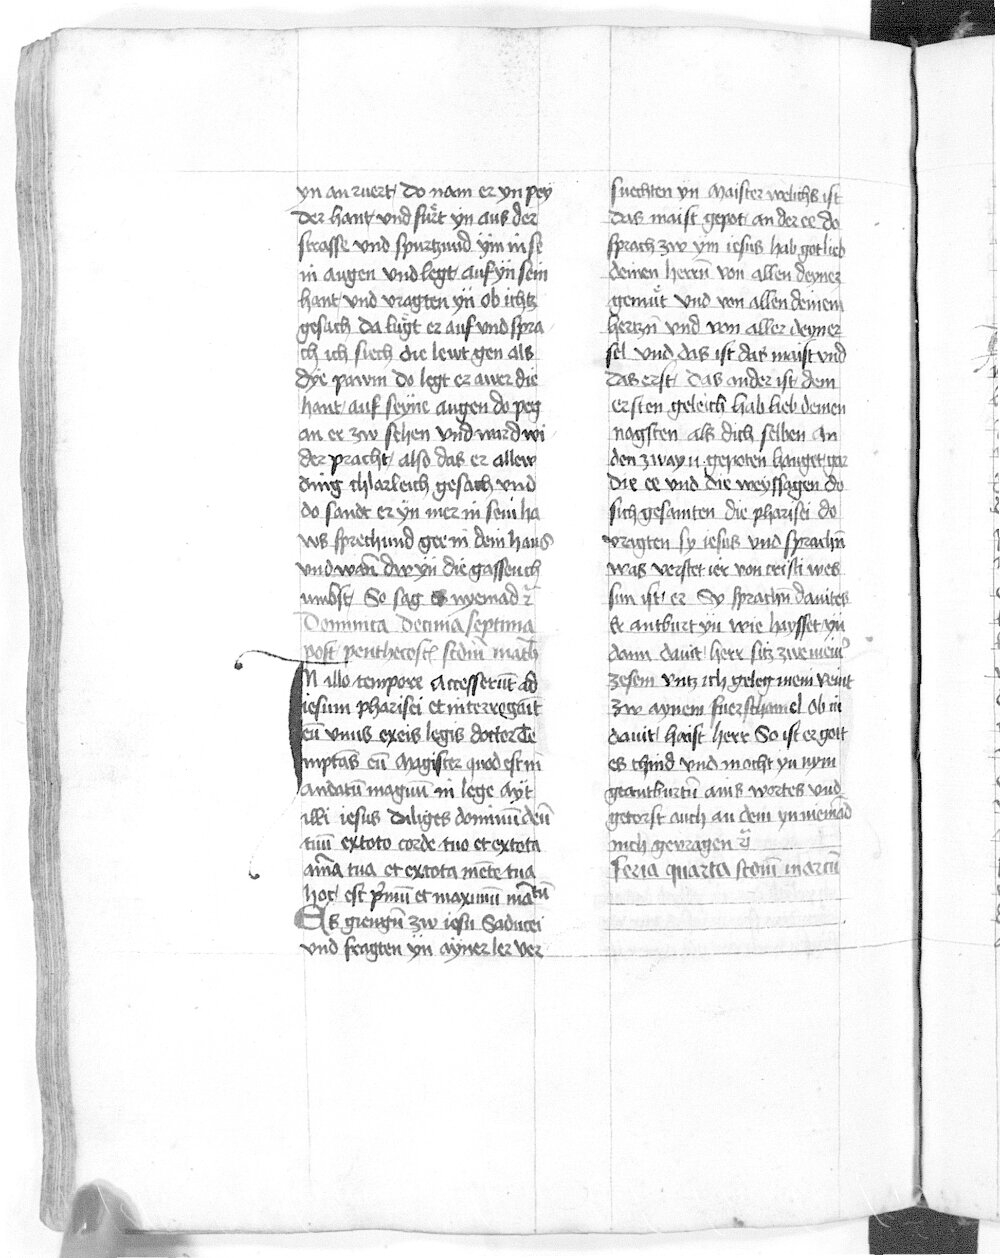 yn an ruert Do nam er yn pey
Der hant vnd fürt yn aus der
strasse vnd spurtzund ym in se
in augen vnd legt auf yn sein
hant vnd vragten yn ob ichtz
gesach da lugt er auf vnd spra
ch ich siech die lewt gen als
dye pawm do legt er awer die
hant auf seyne augen do peg
an er zw sehen vnd ward wi
der pracht also das er allew
ding chlarleich gesach vnd
do sandt er yn mer in sein ha
ws sprechund gee in dein haus
vnd wan dw yn die gassen ch
umbst So sag es nyemad
Dominica Decima septima
post penthecost scdm math
In illo tempore Accesserut ad
iesum pharisei et interrogaut
eu vnus exeis legis doctor Te
mptas eu Magister quod est m
andatu magnu in lege Ayt
illi iesus Diliges dominu deu
tuu extoto corde tuo et extota
aīa tua et extota mēte tua
hoc est pmu et maximu matu
Es giengn zw iesu Saducei
vnd fragten yn ayner ler ver
suechten yn Maister welichs ist
das maist gepot an der ee do
sprach zw ym iesus hab got lieb
deinen herrn von allen deyner
gemüt vnd von allen deinem
hertzn vnd von aller deyner
sel vnd das ist das maist vnd
das erst Das ander ist dem
ersten geleich hab lieb deinen
nagsten als dich selben An
den zwayn gepoten hanget gar
Die ee vnd die weyssagen do
sich gesamten die pharisei do
vragten sy iesus vnd sprachn
was verstet ier von cristi wes
sun ist er Sy sprachn dauites
Er antburt yn wie haysset yn
dann dauit herr sitz zwe meiner
zesem vntz ich geleg mein veint
zw aynem fuerschamel Ob in
dauit haist herr So ist er gott
es chind vnd mocht yn nym
geantburtn ains wortes vnd
getorst auch an dem yn niemad
nich gevragen
Feria quarta scdm marcu